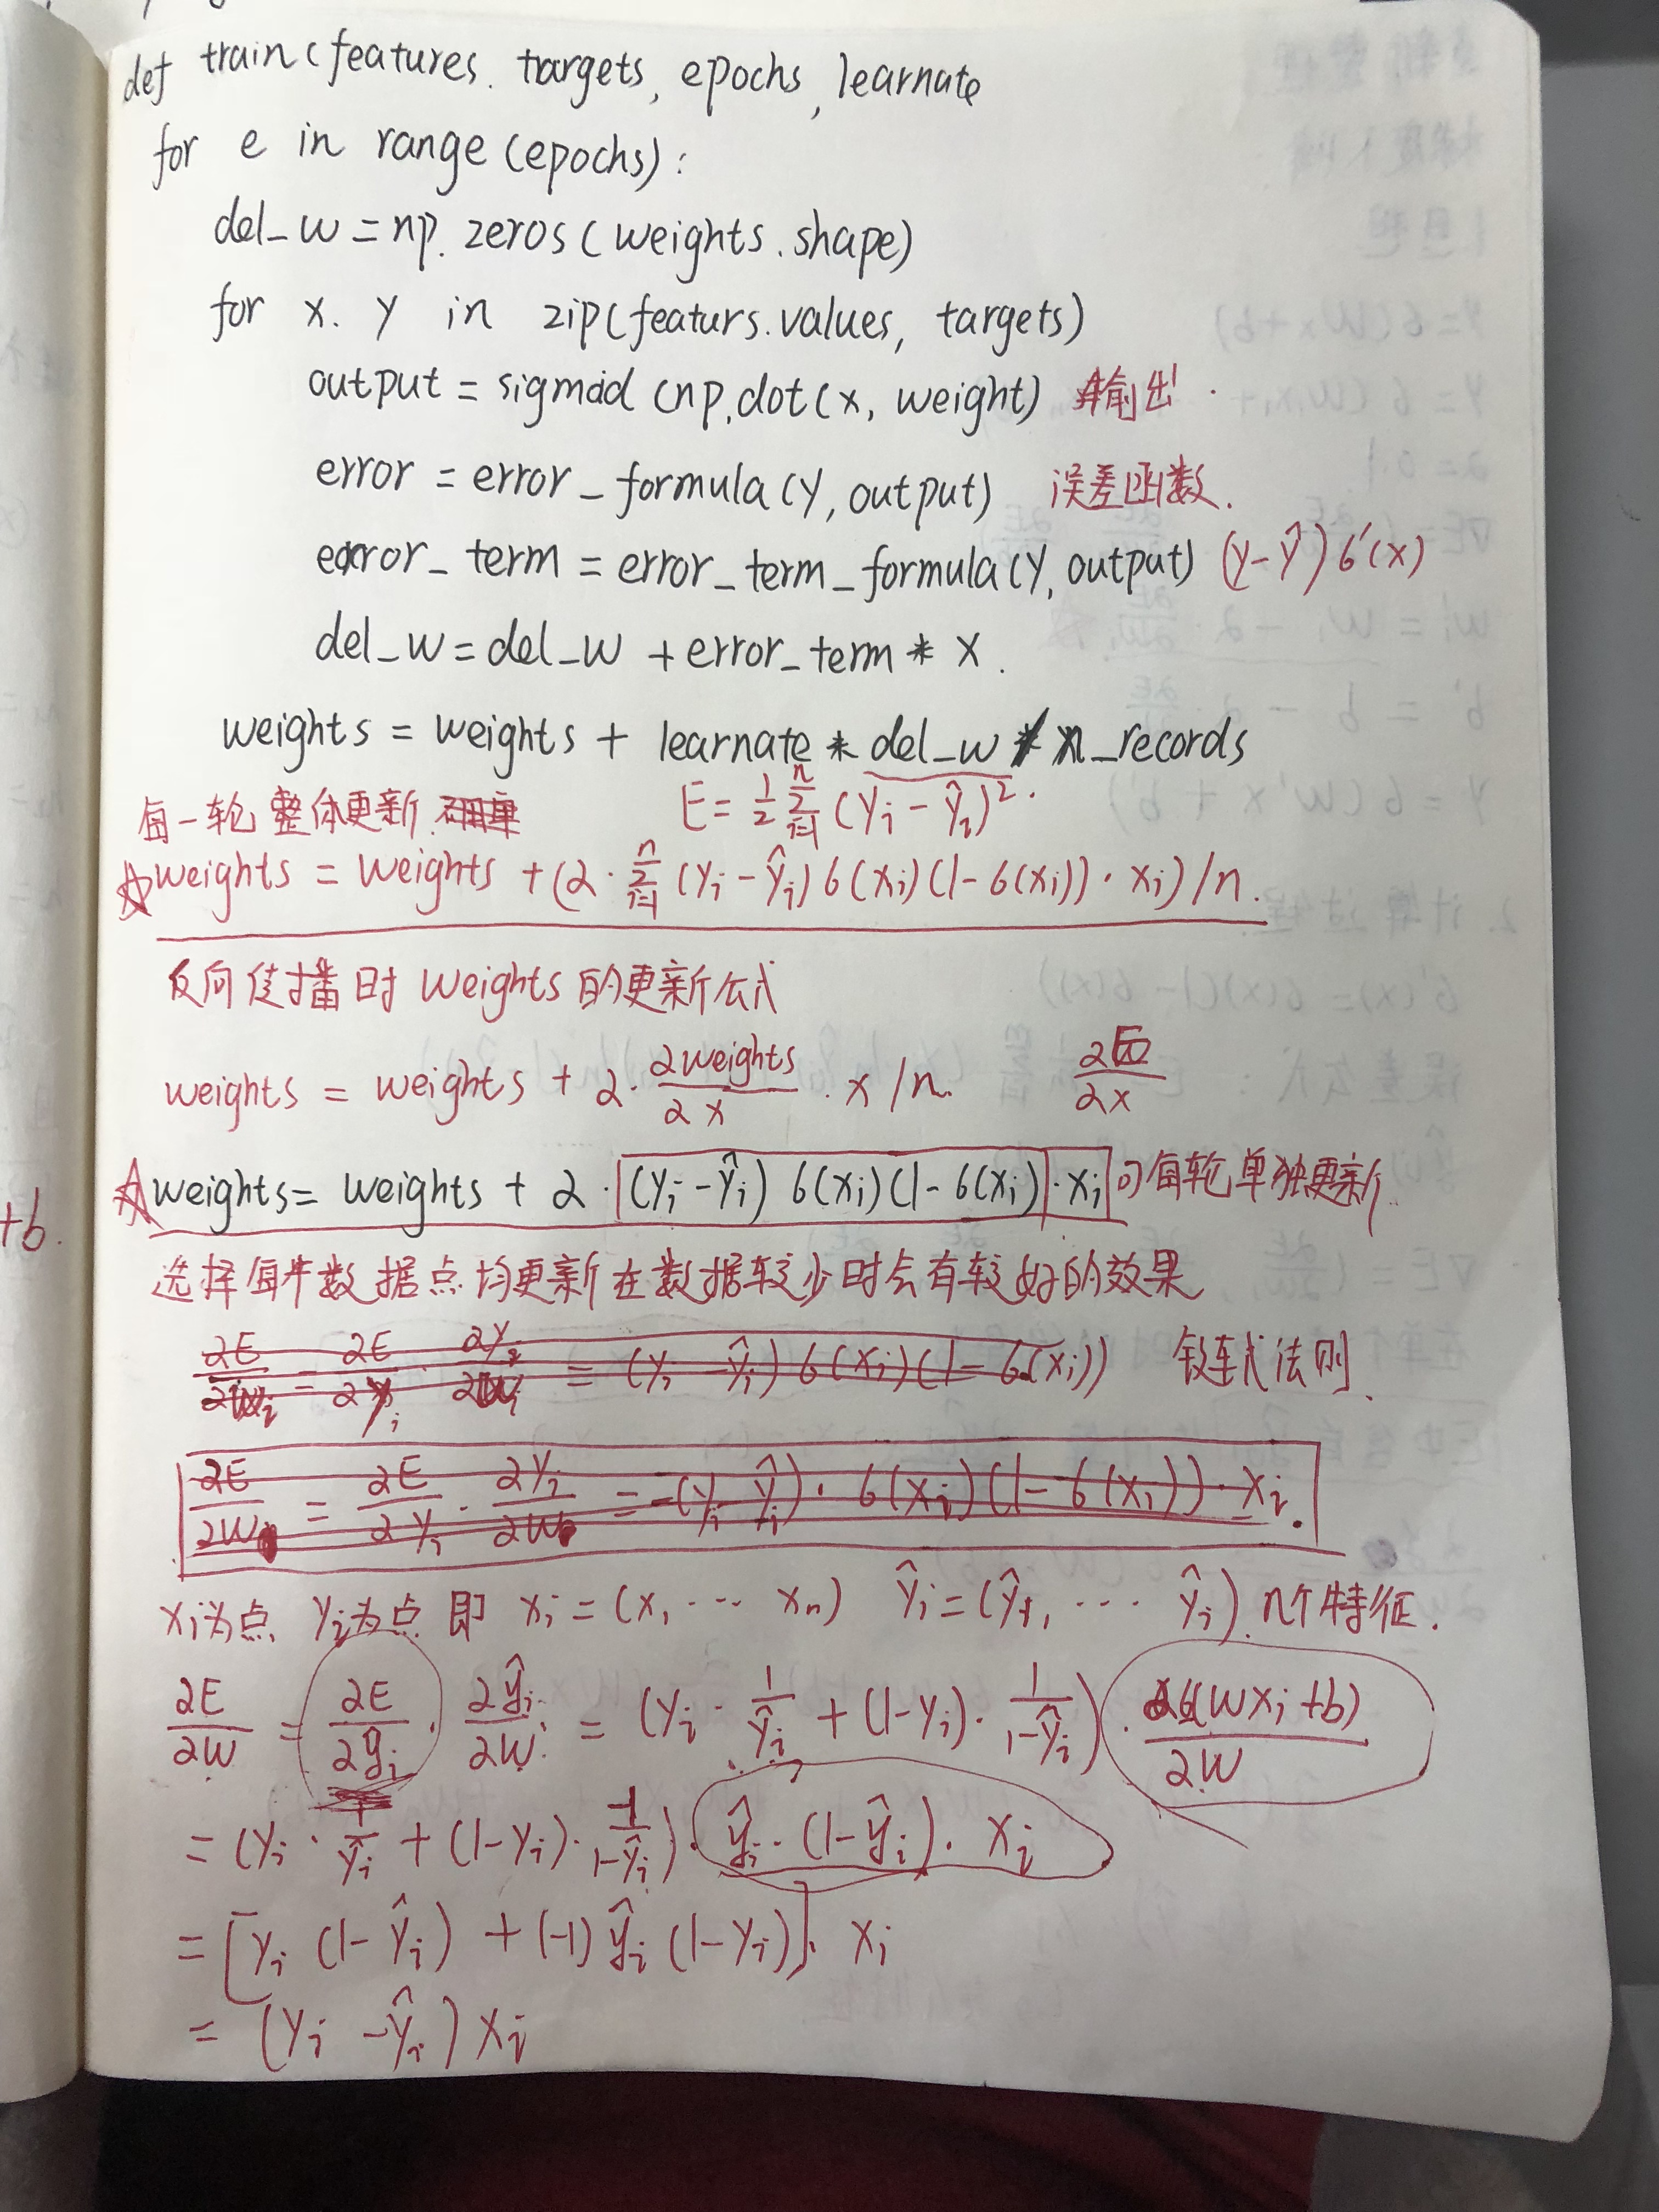 def train(features. targets, epochs, learnate
for e in range(epochs):
del_w = np.zeros(weights.shape)
for x. y in zip(featurs.values, targets)
output = sigmoid (np.dot(x, weight) #输出
error = error_formula(y, output) 误差函数.
error_term = error_term_formula(y, output) (y-ŷ)б'(x)
del_w = del_w + error_term * x.
weights = weights + learnate * del_w / n_records
每一轮整体更新. E = 1/2 Σ_{i=1}^{n} (yi - ŷi)².
☆weights = weights + (2 · Σ_{i=1}^{n} (yi - ŷi) б(xi)(1-б(xi)) · xi)/n.
反向传播时 weights 的更新公式
weights = weights + 2 · ∂weights/∂x · x /n. ∂E/∂x
☆weights = weights + 2 · (yi - ŷi) б(xi)(1-б(xi) · xi 可每轮单独更新
选择每个数据点均更新在数据较少时会有较好的效果
∂E/∂wi = ∂E/∂yi · ∂yi/∂wi = (yi - ŷi) б(xi)(1-б(xi)) 链式法则.
∂E/∂w = ∂E/∂yi · ∂yi/∂w = -(yi - ŷi) · б(xi)(1-б(xi)) · xi.
xi为点, yi为点 即 xi = (x, ··· xn) ŷi = (ŷ1, ··· ŷi) n个特征.
∂E/∂w = ∂E/∂ŷi · ∂ŷi/∂w = (yi · 1/ŷi + (1-yi) · 1/1-ŷi) · ∂б(wxi+b)/∂w
= (yi · 1/ŷi + (1-yi) · -1/1-ŷi) · ŷi · (1-ŷi) · xi
= [yi (1-ŷi) + (-1) ŷi (1-yi)] · xi
= (yi - ŷi) xi
+b.